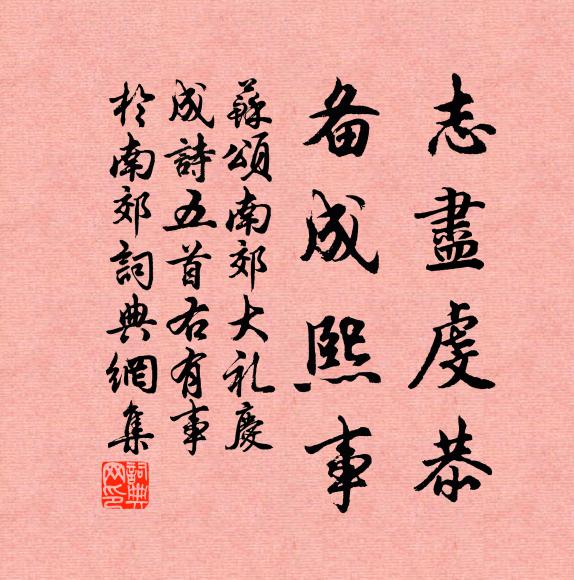 志盡虔恭
备成熙事
蘇頌南郊大礼慶
成詩五首右有事
於南郊詞典網集
詞典网印